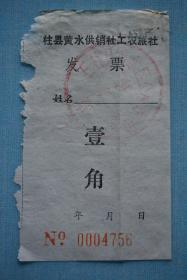 柱县黄水供销社工农旅社
发 票
姓名
壹
角
年 月 日
№ 0004756